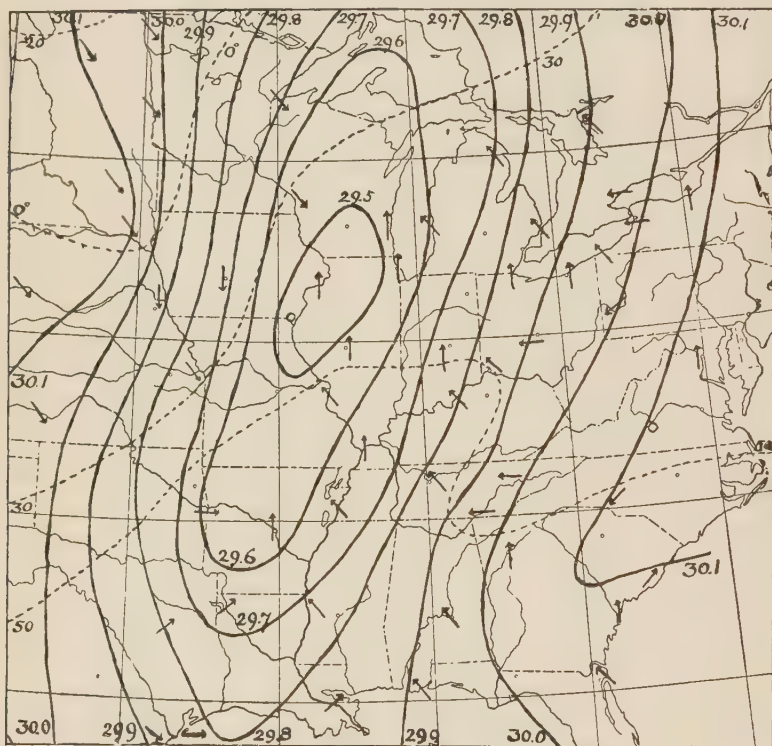 30.1 30.0 29.9 29.8 29.7 29.6 29.7 29.8 29.9 30.0 30.1
0°
30
29.5
0°
30.1
30
29.6
30.1
29.7
50
30.0 29.9 29.8 29.9 30.0